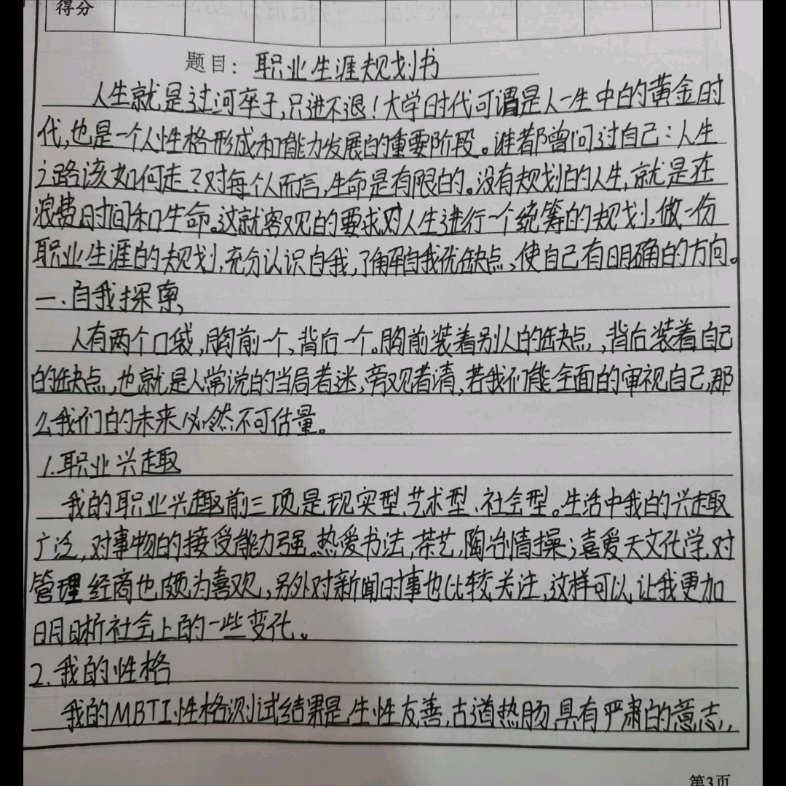 得分
题目：职业生涯规划书
人生就是过河卒子，只进不退！大学时代可谓是人一生中的黄金时
代，也是一个人性格形成和能力发展的重要阶段。谁都曾问过自己：人生
之路该如何走？对每个人而言，生命是有限的。没有规划的人生，就是在
浪费时间和生命。这就客观的要求对人生进行一个统筹的规划，做一份
职业生涯的规划，充分认识自我，了解自我优缺点，使自己有明确的方向。
一.自我探索
人有两个口袋，胸前一个，背后一个。胸前装着别人的缺点，背后装着自己
的缺点，也就是人常说的当局者迷，旁观者清，若我们能全面的审视自己，那
么我们的未来必然不可估量。
1.职业兴趣
我的职业兴趣前三项是现实型、艺术型、社会型。生活中我的兴趣
广泛，对事物的接受能力强，热爱书法，茶艺，陶冶情操；喜爱天文化学，对
管理经商也颇为喜欢，另外对新闻时事也比较关注，这样可以让我更加
明晰社会上的一些变化。
2.我的性格
我的MBTI性格测试结果是，生性友善，古道热肠，具有严肃的意志，
第3页